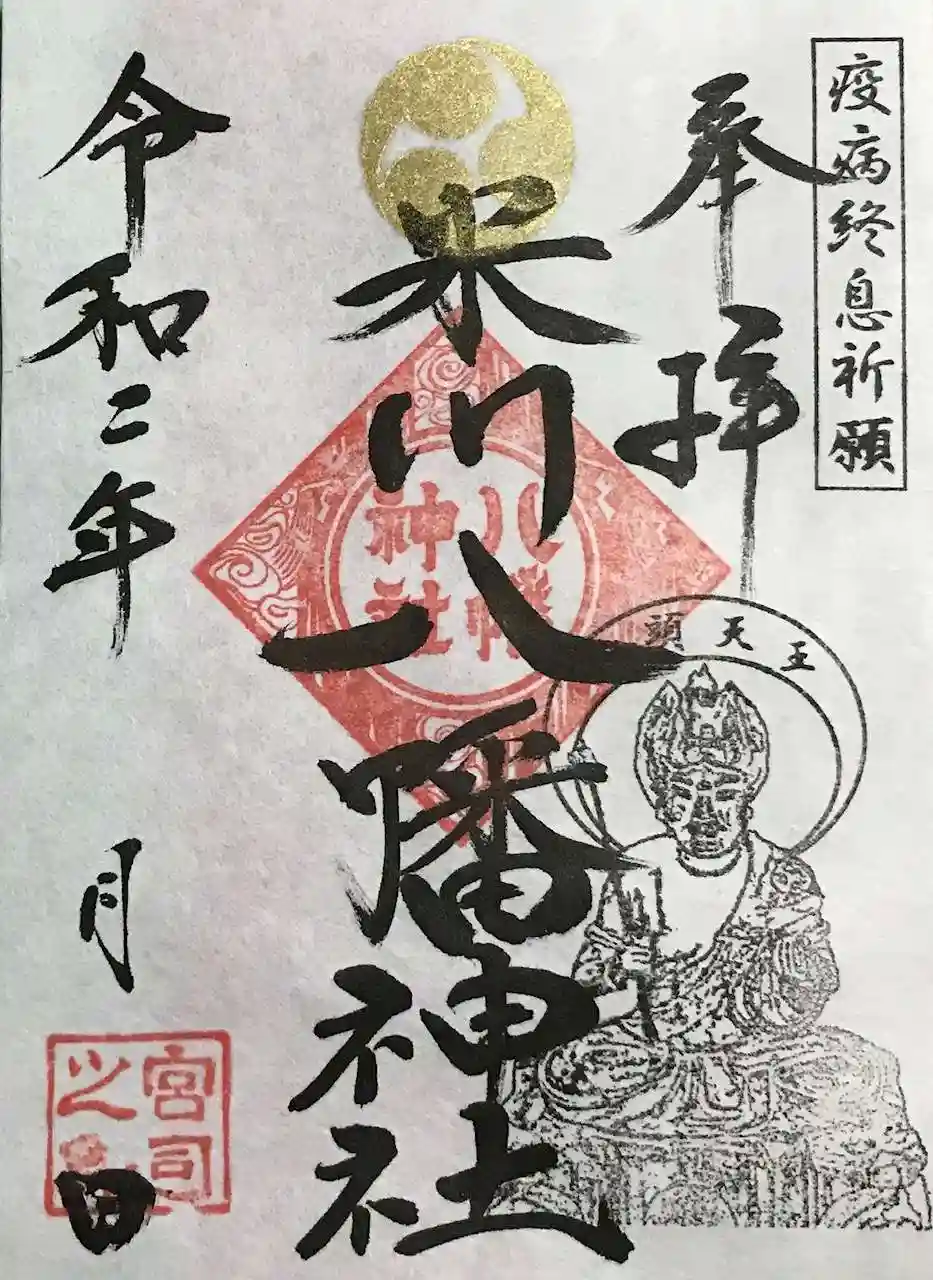 疫病終息祈願
奉拝
川八幡神社
八幡
神社
頭天王
令和二年
月
日
宮司
之印